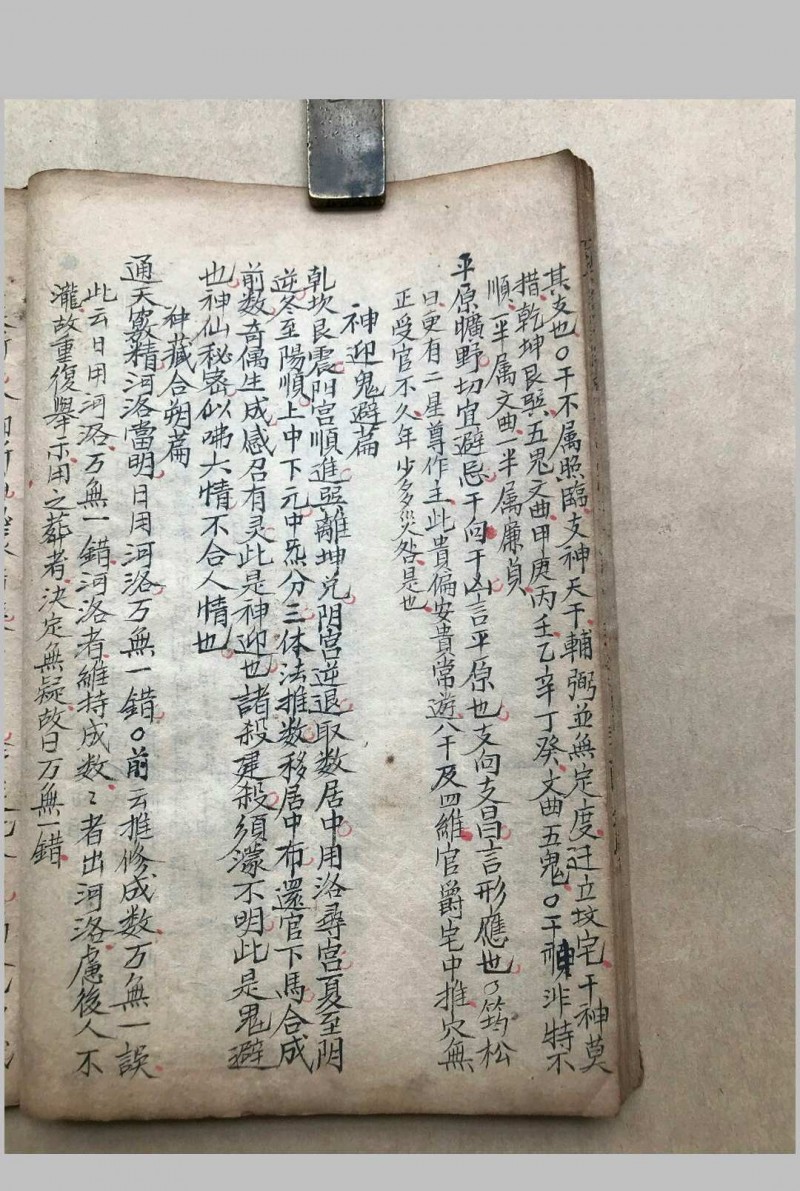 其支也〇干不属照臨支神天干輔弼並無定度迁立坟宅干神莫
措乾坤艮巽五鬼文曲甲庚丙壬乙辛丁癸文曲五鬼〇干神非特不
順一半属文曲一半属廉貞
平原曠野切宜避忌干向干山言平原也支向支言形應也〇筠松
曰更有二星尊作主此貴偏安貴常遊八干及四維官爵宅中推穴無
正受官不久年少多災咎是也
神迎鬼避篇
乾坎艮震阳宮順進巽離坤兌阴宮逆退取数居中用洛尋宮夏至阴
逆冬至陽順上中下元中炁分三体法推数移居中布還官下馬合成
前数奇偶生成感召有灵此是神迎也諸殺建殺須濛不明此是鬼避
也神仙秘密似咈大情不合人情也
神藏合朔篇
通天竅精河洛當明日用河洛万無一錯〇前云推修成数万無一誤
此云日用河洛万無一錯河洛者維持成数〻者出河洛慮後人不
瀧故重復舉示用之葬者决定無疑故曰万無一錯